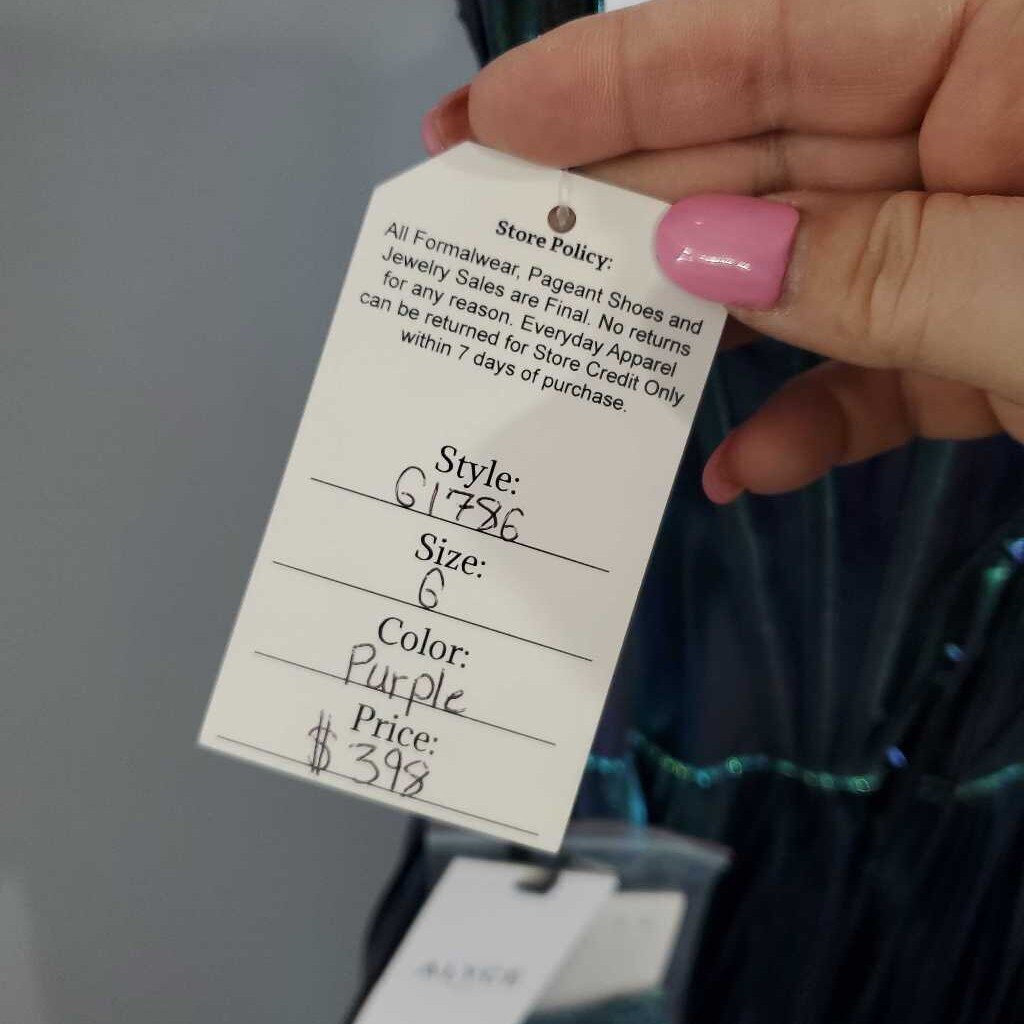 Store Policy:
All Formalwear, Pageant Shoes and
Jewelry Sales are Final. No returns
for any reason. Everyday Apparel
can be returned for Store Credit Only
within 7 days of purchase.
Style:
61786
Size:
6
Color:
Purple
Price:
$398